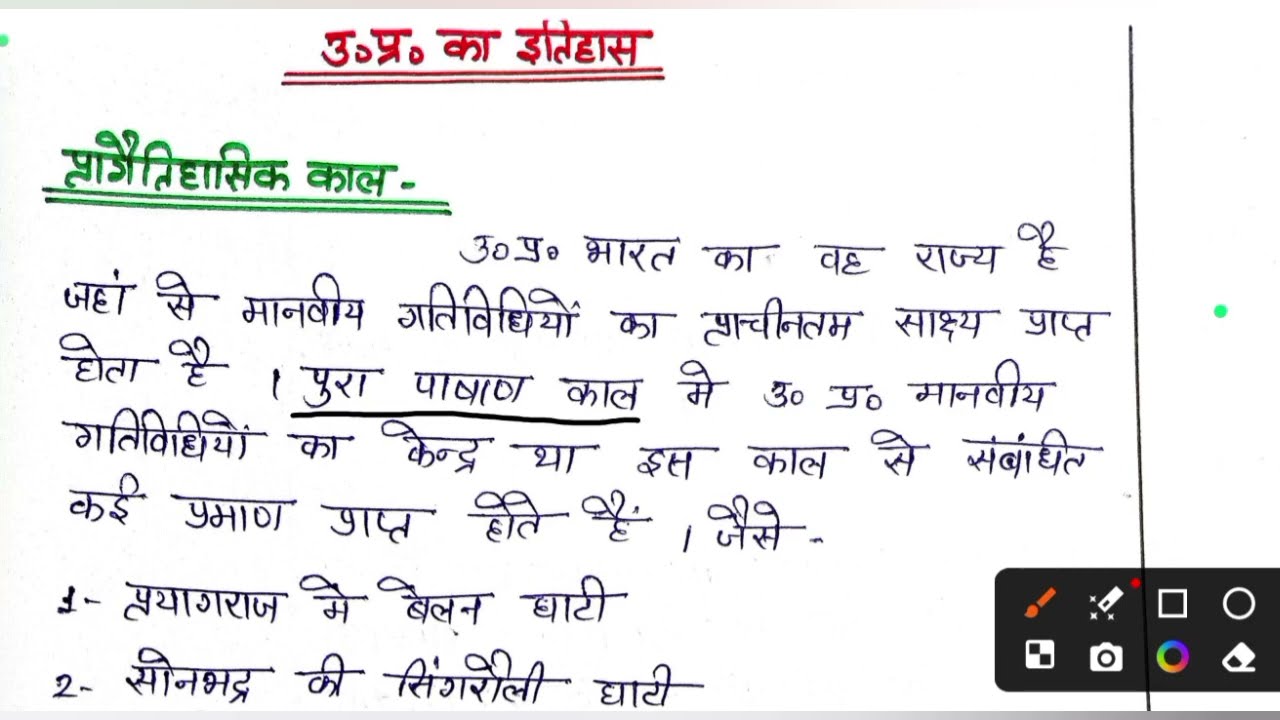 उ॰प्र॰ का इतिहास
प्रागैतिहासिक काल -
उ॰प्र॰ भारत का वह राज्य है
जहां से मानवीय गतिविधियों का प्राचीनतम साक्ष्य प्राप्त
होता है । पुरा पाषाण काल मे उ॰ प्र॰ मानवीय
गतिविधियों का केन्द्र था इस काल से संबांधित
कई प्रमाण प्राप्त होते हैं । जैसे -
1- प्रयागराज मे बेलन घाटी
2- सोनभद्र की सिंगरौली घाटी